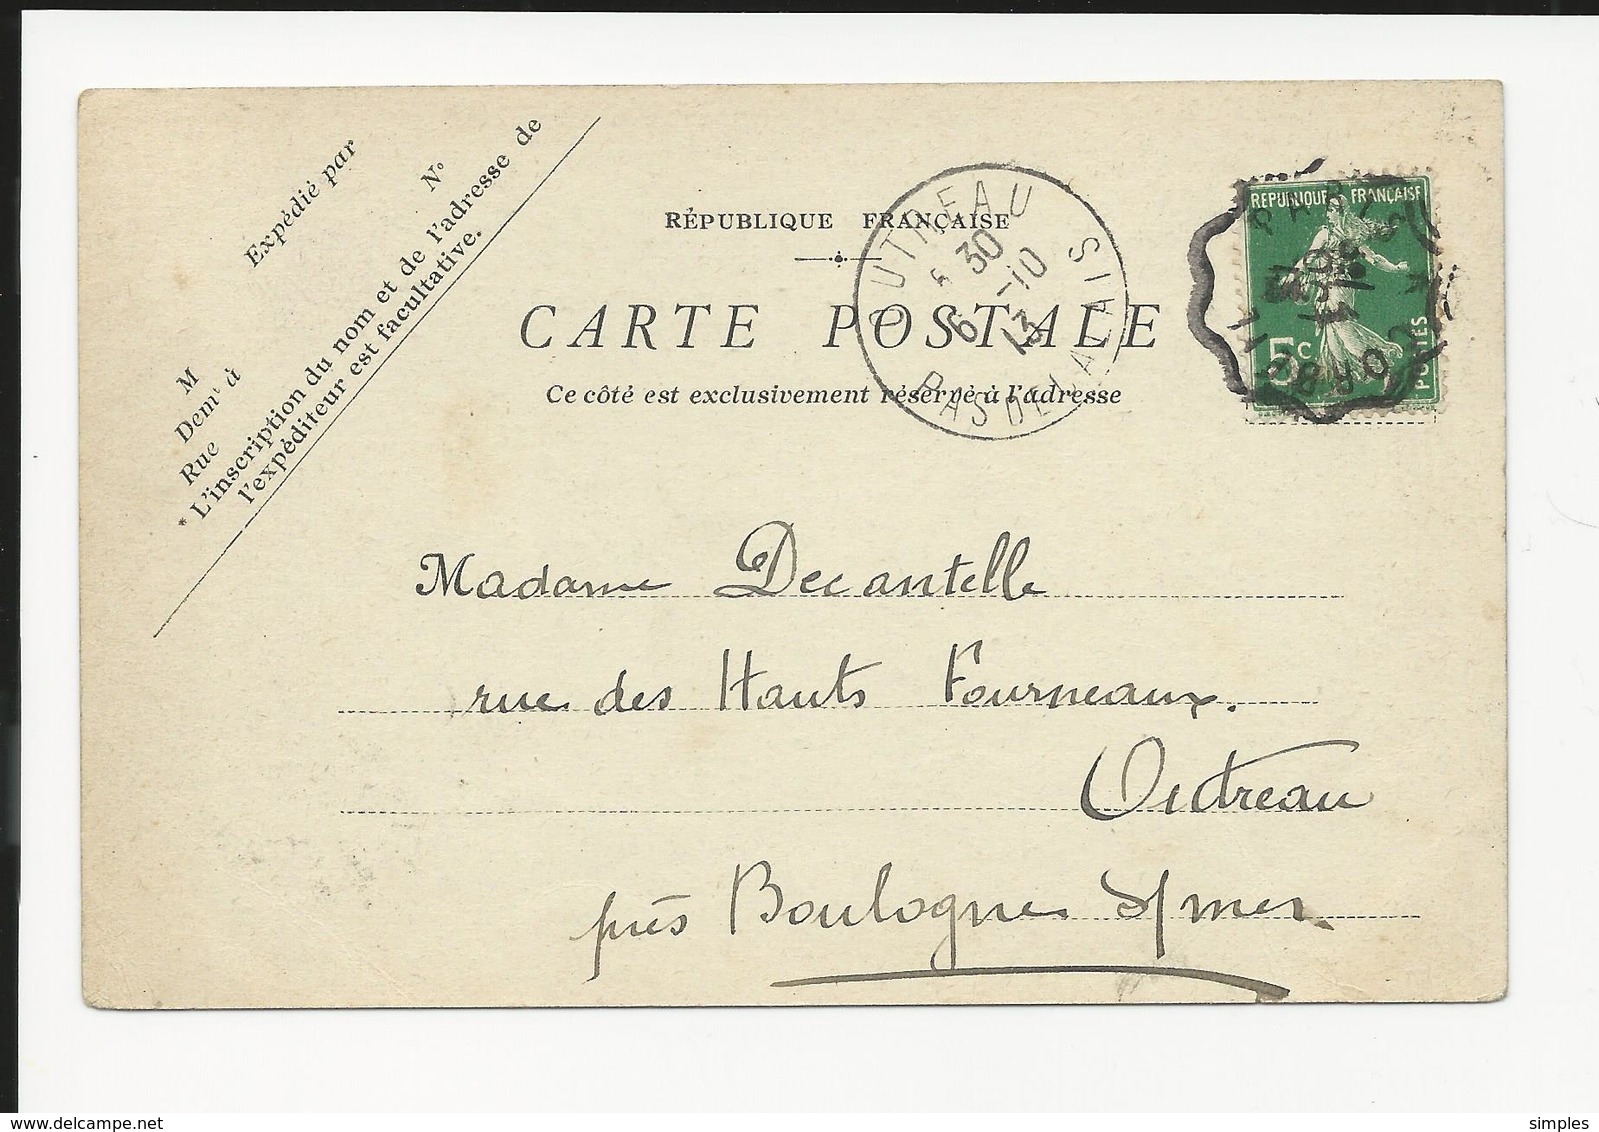 Expédié par
M N°
Demt à
Rue
* L'inscription du nom et de l'adresse de
l'expéditeur est facultative.
RÉPUBLIQUE FRANÇAISE
CARTE POSTALE
Ce côté est exclusivement réservé à l'adresse
OUTREAU
30
6 -10
13
PAS DE CALAIS
REPUBLIQUE FRANÇAISE
5c
POSTES
PARIS
Madame Decantelle
rue des Hauts Fourneaux.
Outreau
près Boulogne s/mer.
simples